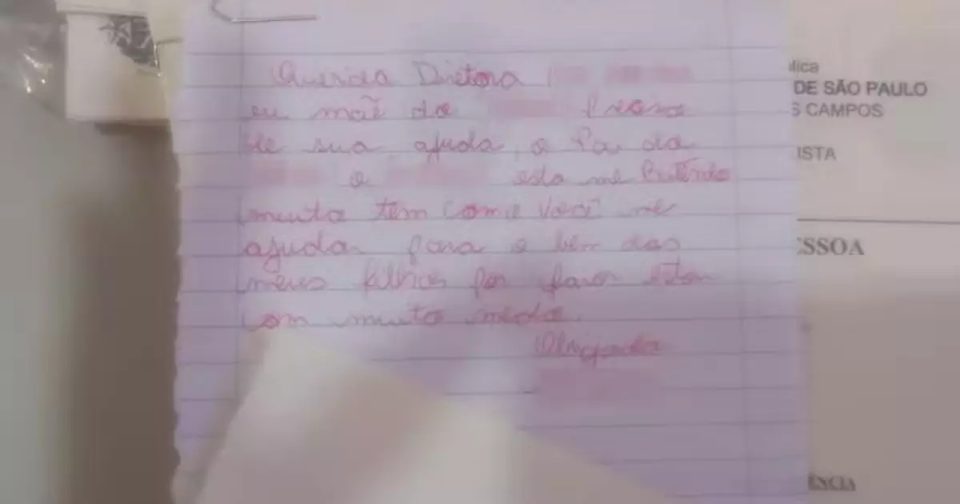 Querida Diretora
eu mãe da preciso
de sua ajuda, o Pai da
e esta me batendo
muito tem como você me
ajudar para o bem dos
meus filhos por favor estou
com muito medo.
Obrigada
lica
DE SÃO PAULO
S CAMPOS
ISTA
SSOA
ÊNCIA